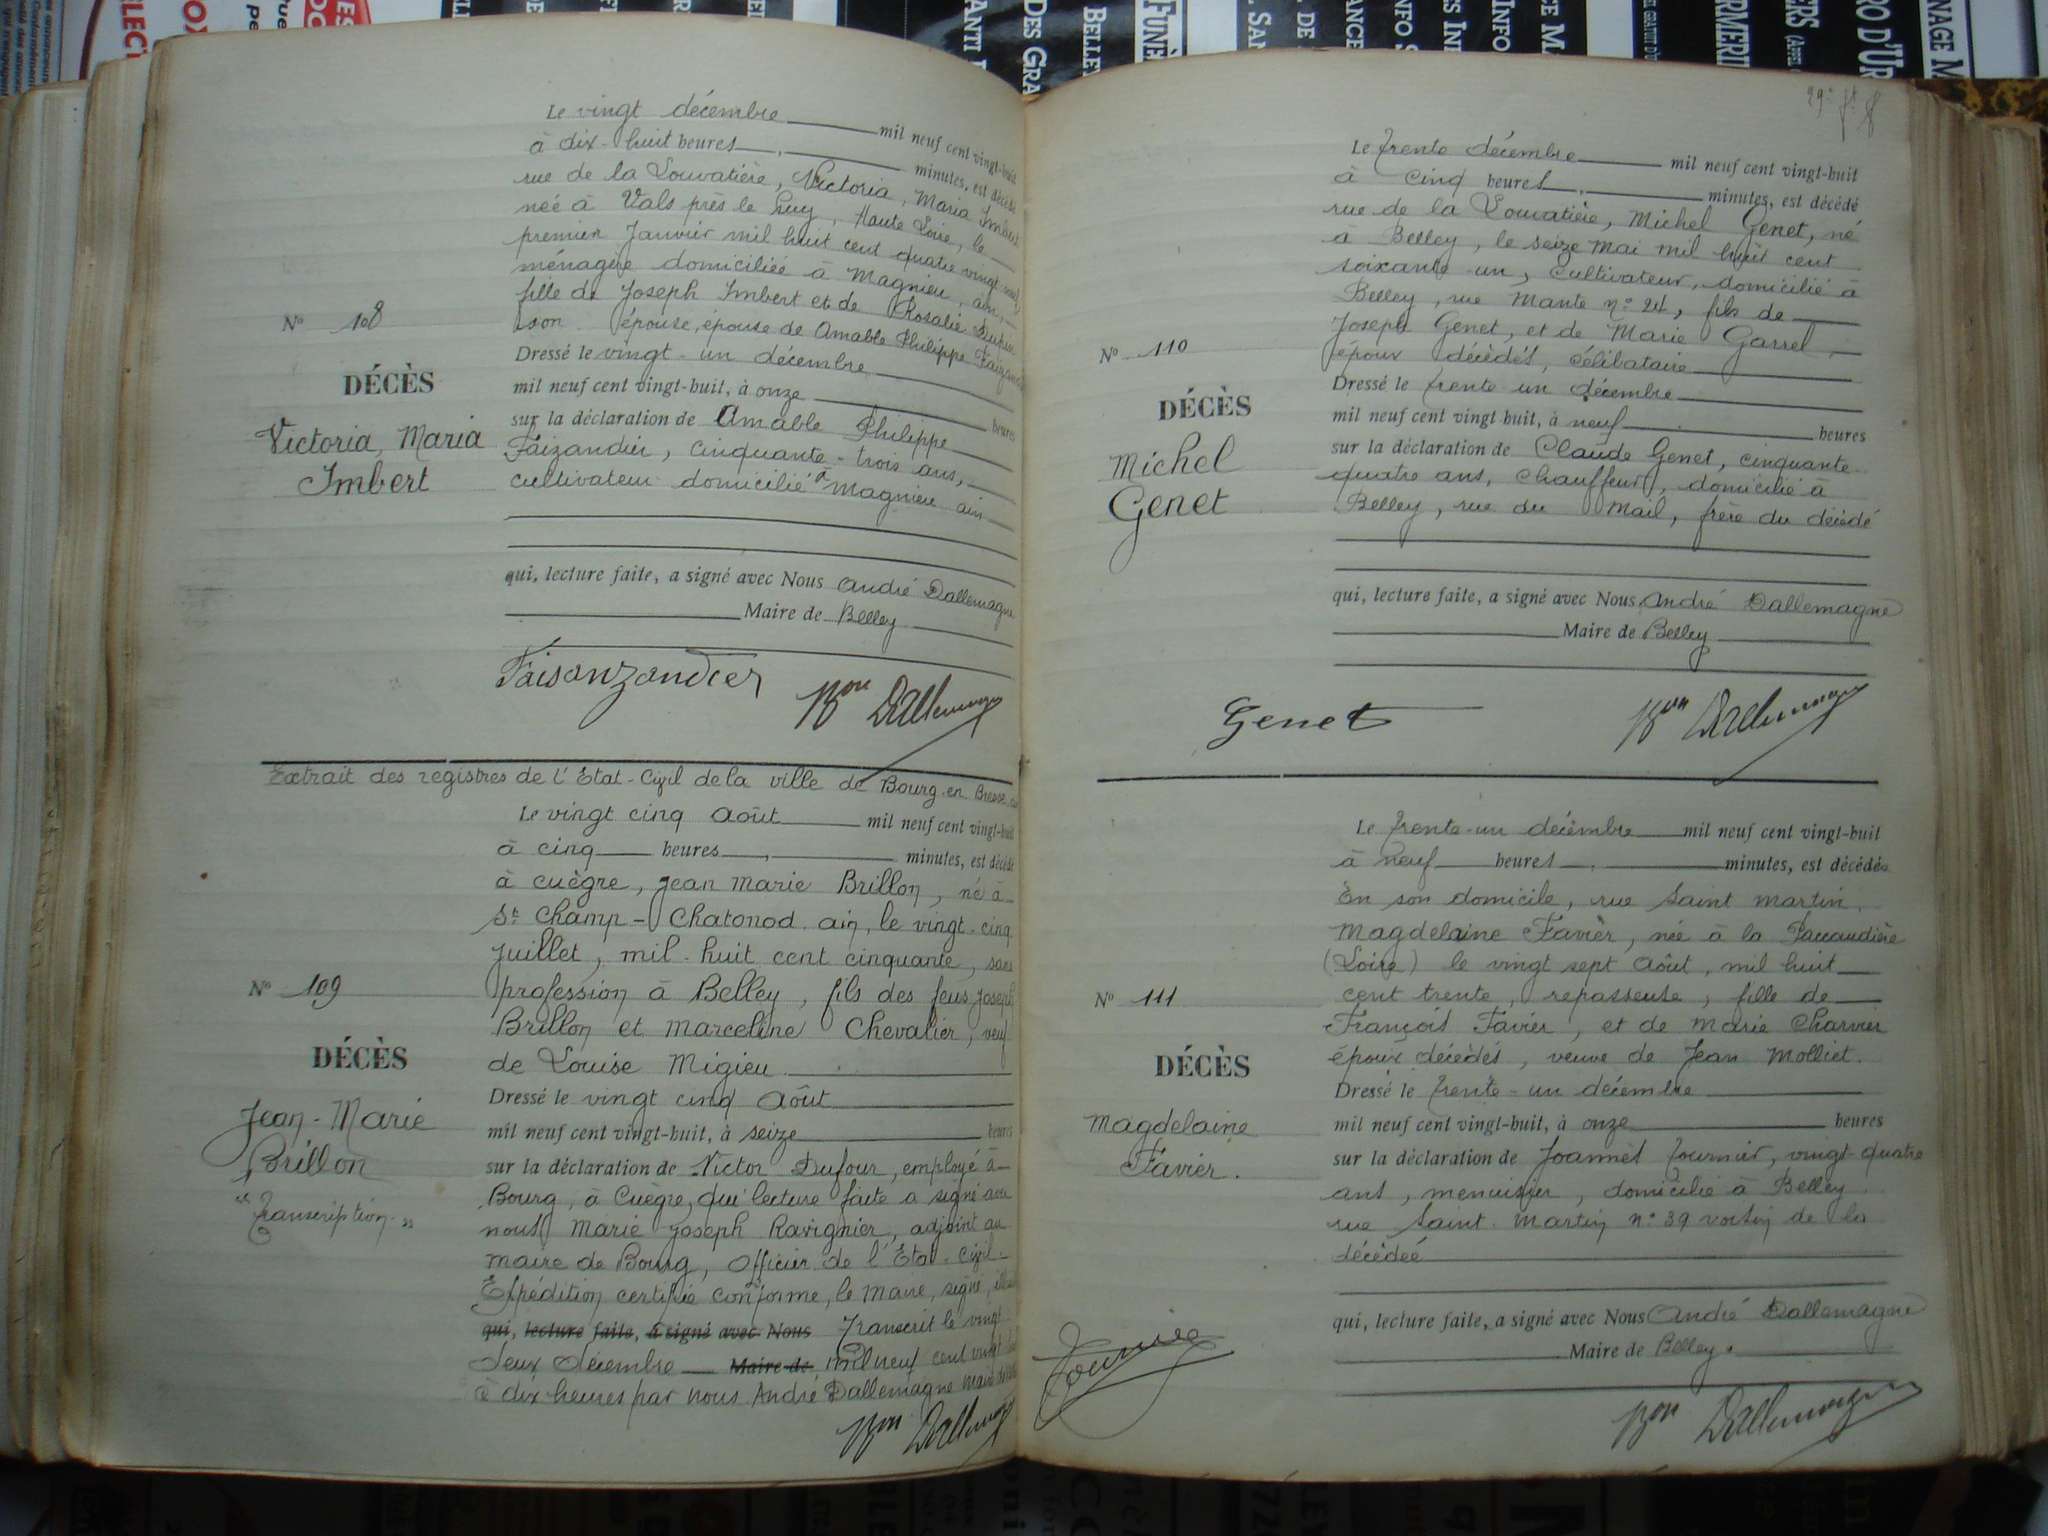 Le vingt décembre mil neuf cent vingt-huit
à dix-huit heures, minutes, est décédé
rue de la Louvatière, Victoria, Maria Imbert
née à Vals près le Puy, Haute Loire, le
premier Janvier mil huit cent quatre vingt
ménagère domiciliée à Magnieu, ain,
fille de Joseph Imbert et de Rosalie Dupin
son épouse, épouse de Amable Philippe Faizandier
Dressé le vingt-un décembre
mil neuf cent vingt-huit, à onze heures
sur la déclaration de Amable Philippe
Faizandier, cinquante-trois ans,
cultivateur domicilié à Magnieu ain
qui, lecture faite, a signé avec Nous André Dallemagne
Maire de Belley
N° 108
DÉCÈS
Victoria, Maria
Imbert
Faisanzandier
Bon Dallemagne
Extrait des registres de l'Etat-Civil de la ville de Bourg-en-Bresse
Le vingt cinq Août mil neuf cent vingt-huit
à cinq heures, minutes, est décédé
à Cuègre, Jean Marie Brillon, né à
St Champ-Chatonod ain, le vingt-cinq
Juillet, mil-huit cent cinquante, sans
profession à Belley, fils des feus Joseph
Brillon et Marceline Chevalier, veuf
de Louise Migieu
Dressé le vingt cinq Août
mil neuf cent vingt-huit, à seize heures
sur la déclaration de Victor Dufour, employé à
Bourg, à Cuègre, qui lecture faite a signé avec
nous Marie Joseph Ravignier, adjoint au
maire de Bourg, Officier de l'Etat-Civil.
Expédition certifiée conforme, le Maire, signé,
qui, lecture faite, a signé avec Nous Transcrit le vingt
deux décembre Maire de mil neuf cent vingt
à dix heures par nous André Dallemagne Maire
N° 109
DÉCÈS
Jean-Marie
Brillon
"Transcription"
Bon Dallemagne
29e
Le trente décembre mil neuf cent vingt-huit
à cinq heures, minutes, est décédé
rue de la Louvatière, Michel Genet, né
à Belley, le seize mai mil huit cent
soixante-un, cultivateur, domicilié à
Belley, rue Mante n° 24, fils de
Joseph Genet, et de Marie Garrel
époux décédés, célibataire
Dressé le trente un décembre
mil neuf cent vingt huit, à neuf heures
sur la déclaration de Claude Genet, cinquante-
quatre ans, chauffeur, domicilié à
Belley, rue du Mail, frère du décédé
qui, lecture faite, a signé avec Nous André Dallemagne
Maire de Belley
N° 110
DÉCÈS
Michel
Genet
Genet
Bon Dallemagne
Le trente-un décembre mil neuf cent vingt-huit
à neuf heures, minutes, est décédée
en son domicile, rue Saint martin,
Magdelaine Favier, née à la Paccaudière
(Loire) le vingt sept août, mil huit
cent trente, repasseuse, fille de
François Favier, et de Marie Charvier
époux décédés, veuve de Jean Molliet.
Dressé le trente-un décembre
mil neuf cent vingt-huit, à onze heures
sur la déclaration de Joannès Fournier, vingt-quatre
ans, menuisier, domicilié à Belley
rue Saint Martin n° 39 voisin de la
décédée
qui, lecture faite, a signé avec Nous André Dallemagne
Maire de Belley.
N° 111
DÉCÈS
Magdelaine
Favier.
Fournier
Bon Dallemagne